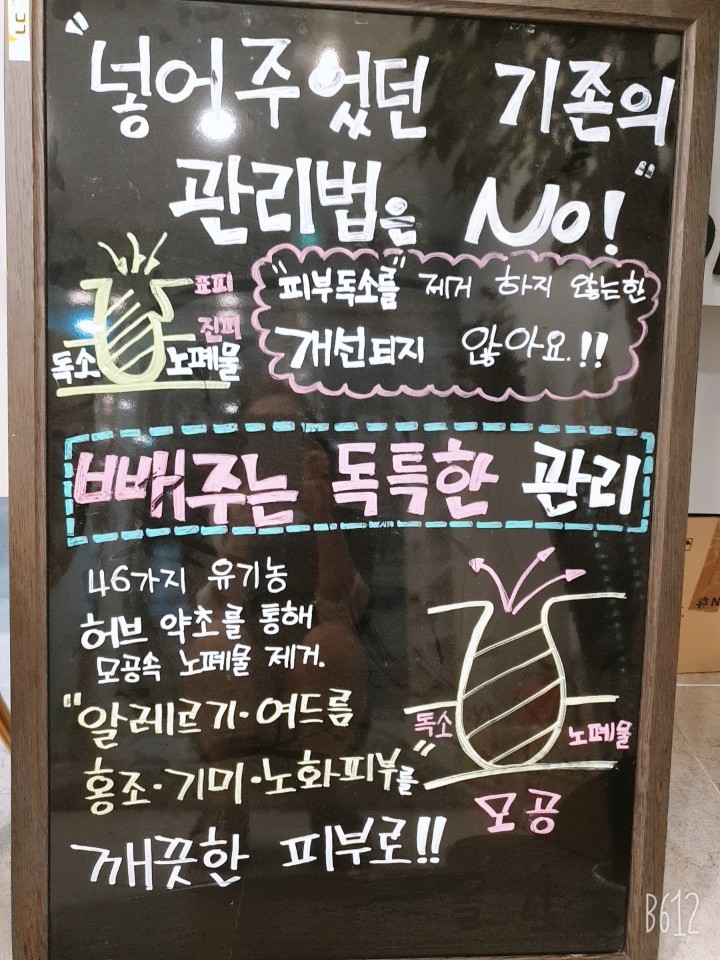 "넣어주었던 기존의
관리법은 No!"
표피
진피
독소 노폐물
"피부독소를" 제거 하지 않는한
개선되지 않아요.!!
빼주는 독특한 관리
46가지 유기농
허브 약초를 통해
모공속 노폐물 제거.
"알레르기·여드름
홍조·기미·노화피부를"
깨끗한 피부로!!
독소 노폐물
모공
B612